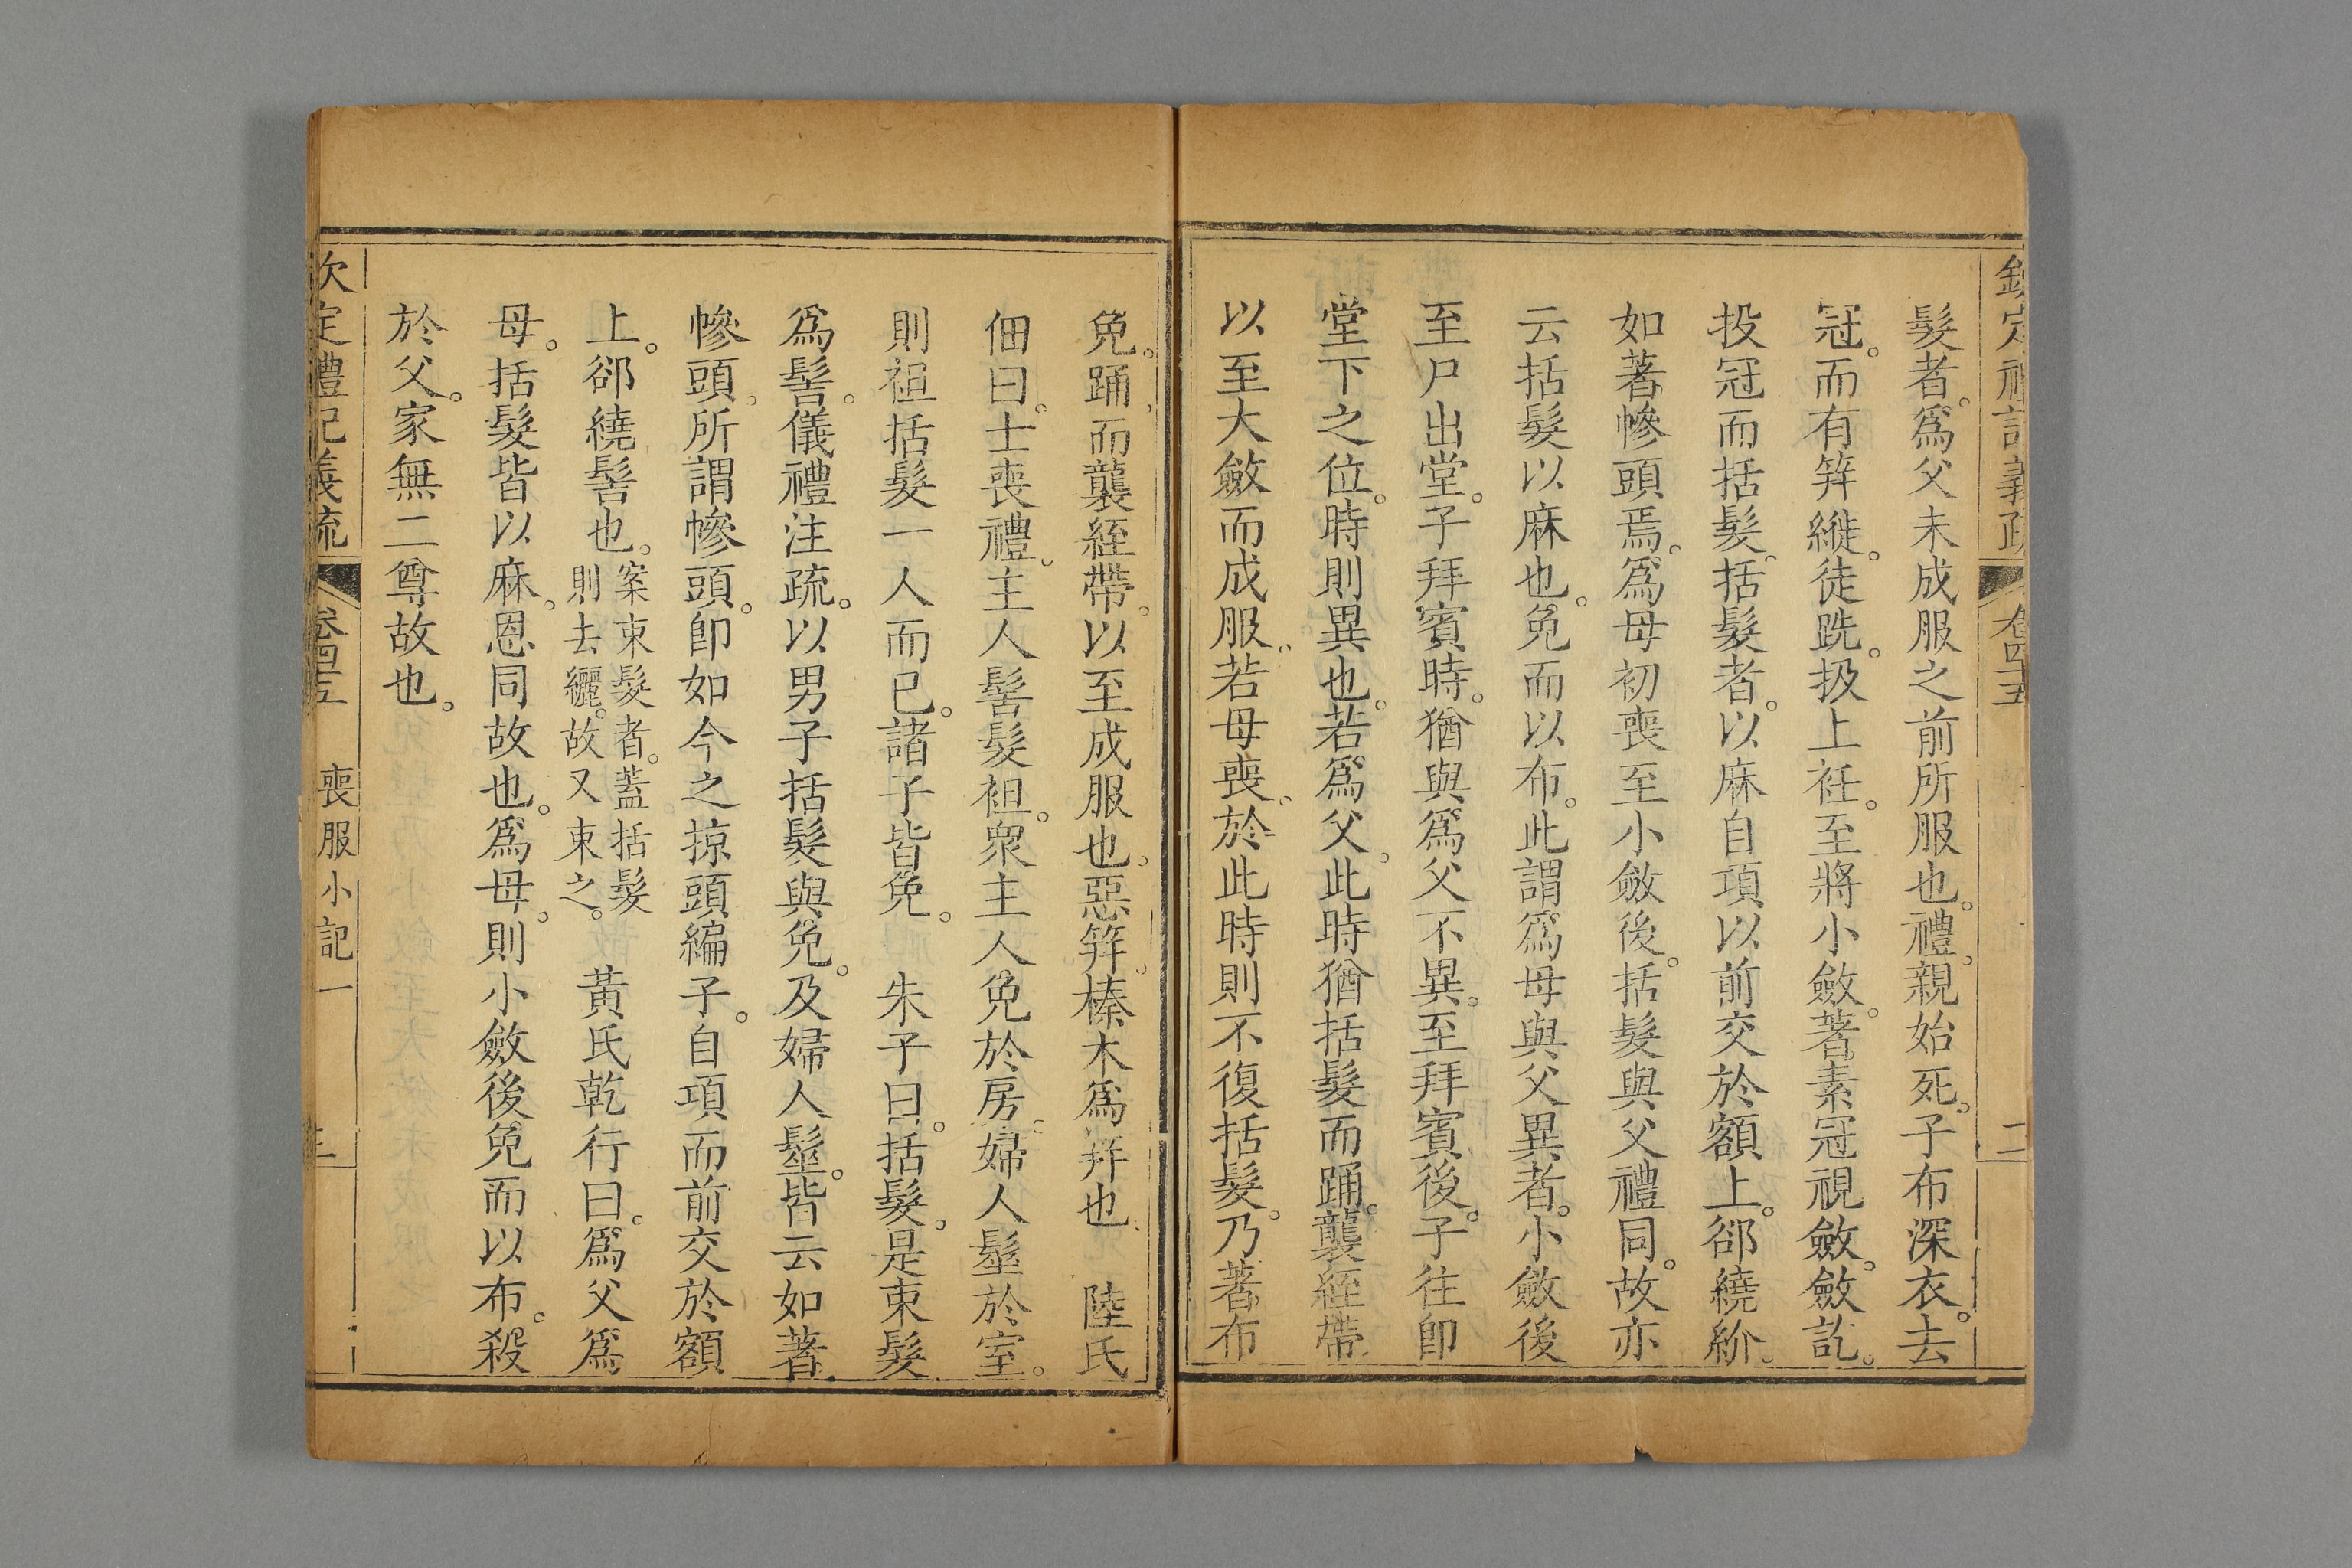 欽定禮記義疏 卷四十五 二
髮者。爲父未成服之前所服也。禮。親始死。子布深衣。去
冠。而有笄縰。徒跣。扱上衽。至將小斂。著素冠視斂。斂訖。
投冠而括髮。括髮者。以麻自項以前交於額上。郤繞紒。
如著幓頭焉。爲母初喪至小斂後。括髮與父禮同。故亦
云括髮以麻也。免而以布。此謂爲母與父異者。小斂後
至尸出堂。子拜賓時。猶與爲父不異。至拜賓後。子往卽
堂下之位。時則異也。若爲父。此時猶括髮而踊。襲絰帶
以至大斂而成服。若母喪。於此時則不復括髮。乃著布
免。踊而襲絰帶。以至成服也。惡笄。榛木爲笄也 陸氏
佃曰。士喪禮。主人髻髮袒。衆主人免於房。婦人髽於室。
則袒括髮一人而已。諸子皆免。 朱子曰。括髮。是束髮
爲髻。儀禮注疏。以男子括髮與免。及婦人髽。皆云如著
幓頭。所謂幓頭。卽如今之掠頭編子。自項而前交於額
上。郤繞髻也。案束髮者。蓋括髮
則去纚。故又束之。 黃氏乾行曰。爲父爲
母。括髮皆以麻。恩同故也。爲母。則小斂後免而以布。殺
於父。家無二尊故也。
欽定禮記義疏 卷四十五 喪服小記一